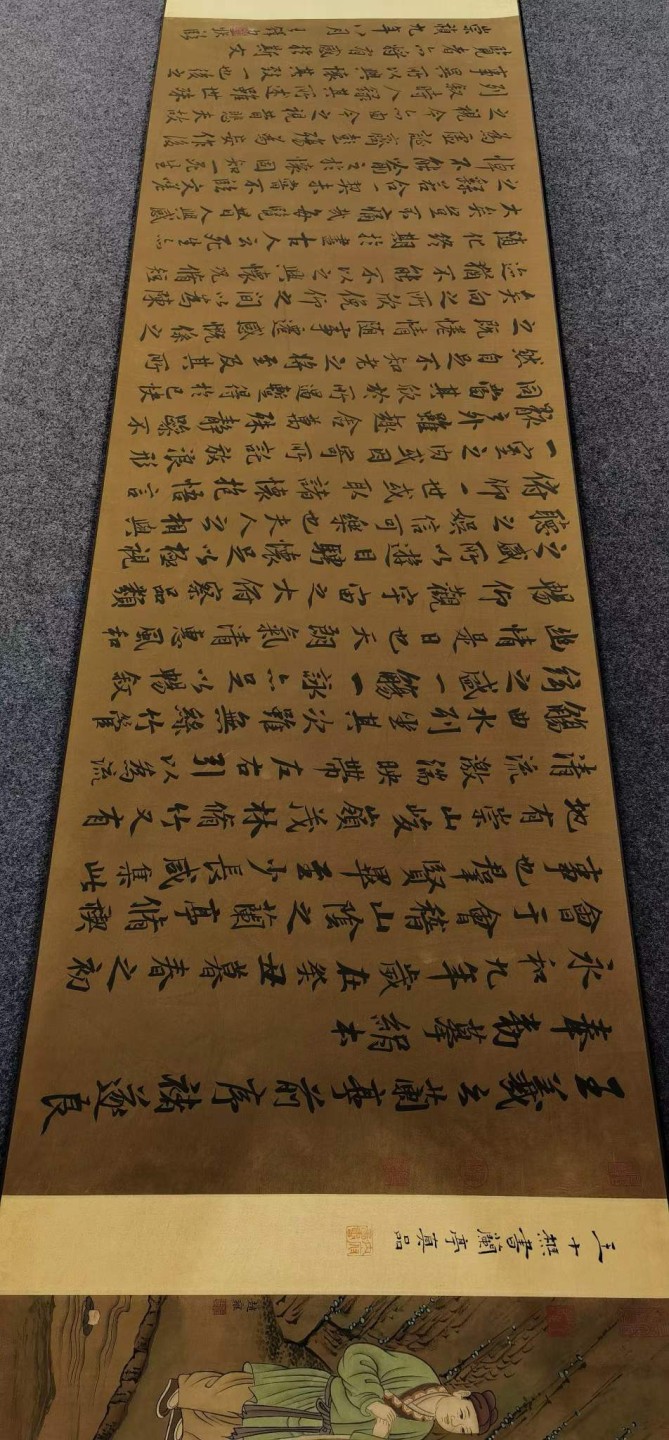 王羲之蘭亭前序褚遂良
奉勅摹絹本
永和九年歲在癸丑暮春之初
會于會稽山陰之蘭亭脩禊
事也羣賢畢至少長咸集此
地有崇山峻嶺茂林脩竹又有
清流激湍映帶左右引以為流
觴曲水列坐其次雖無絲竹管
絃之盛一觴一詠亦足以暢敘
幽情是日也天朗氣清惠風和
暢仰觀宇宙之大俯察品類
之盛所以遊目騁懷足以極視
聽之娛信可樂也夫人之相與
俯仰一世或取諸懷抱悟言
一室之內或因寄所託放浪形
骸之外雖舍萬殊靜躁不
同當其欣於所遇暫得於己快
然自足不知老之將至及其所
之既惓情隨事遷感慨係之
矣向之所欣俛仰之間以為陳
迹猶不能不以之興懷況脩
隨化終期於盡古人云死生亦
大矣豈不痛哉每覽昔人興感
之由若合一契未嘗不臨文嗟
悼不能喻之於懷固知一死生
為虛誕齊彭殤為妄作後
之視今亦由今之視昔悲夫故
列敘時人錄其所述雖世殊
事異所以興懷其致一也後之
覽者亦將有感於斯文
崇禎九年八月王鐸臨
王十樵書蘭亭真品